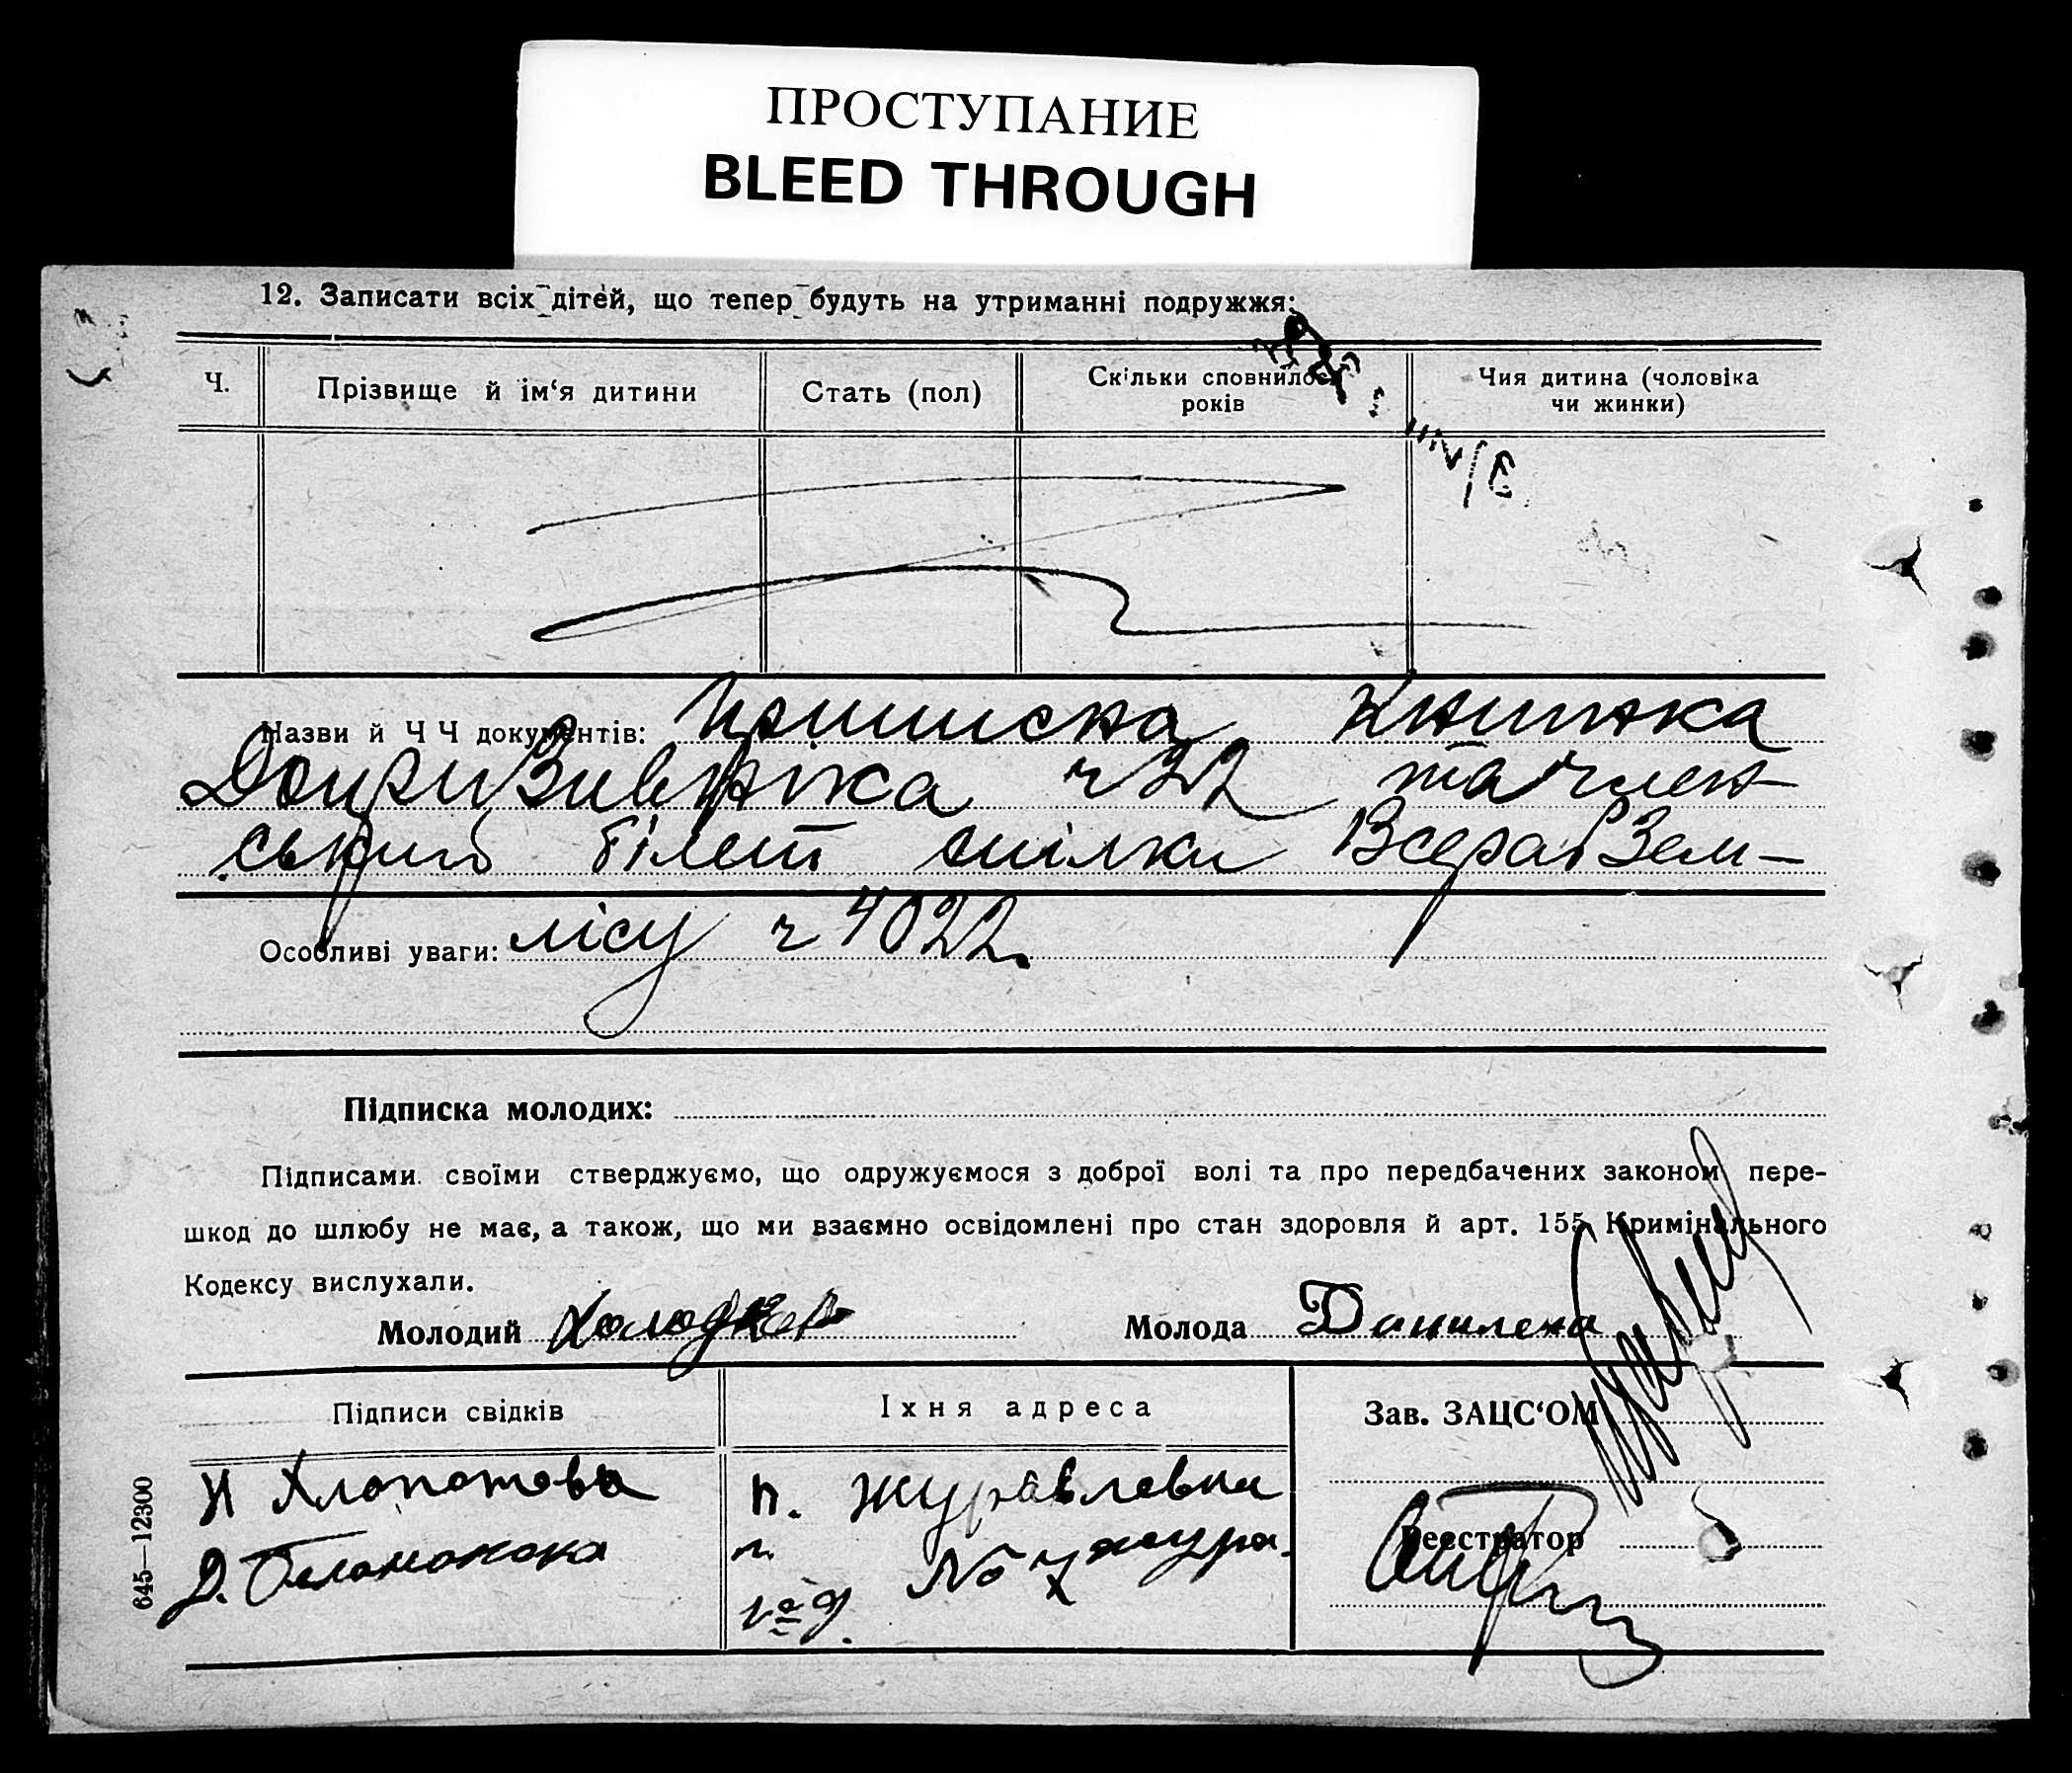 ПРОСТУПАНИЕ
BLEED THROUGH
12. Записати всіх дітей, що тепер будуть на утриманні подружжя:
Ч.
Прізвище й ім‘я дитини
Стать (пол)
Скільки сповнилося років
Чия дитина (чоловіка чи жинки)
Назви й Ч Ч документів: Приписна Книжка
Допризивника ч 22 та член-
ський білет спілки Всерабзем-
Особливі уваги: лісу ч 4022.
Підписка молодих:
Підписами своїми стверджуємо, що одружуємося з доброї волі та про передбачених законом пере-
шкод до шлюбу не має, а також, що ми взаємно освідомлені про стан здоровля й арт. 155 Кримінального
Кодексу вислухали.
Молодий Молода
Підписи свідків
Їхня адреса
Зав. ЗАЦС‘ОМ
Н Хлопотова
п. Журавлевка
Реєстратор
Д.
№ 7 журав.
645—12300